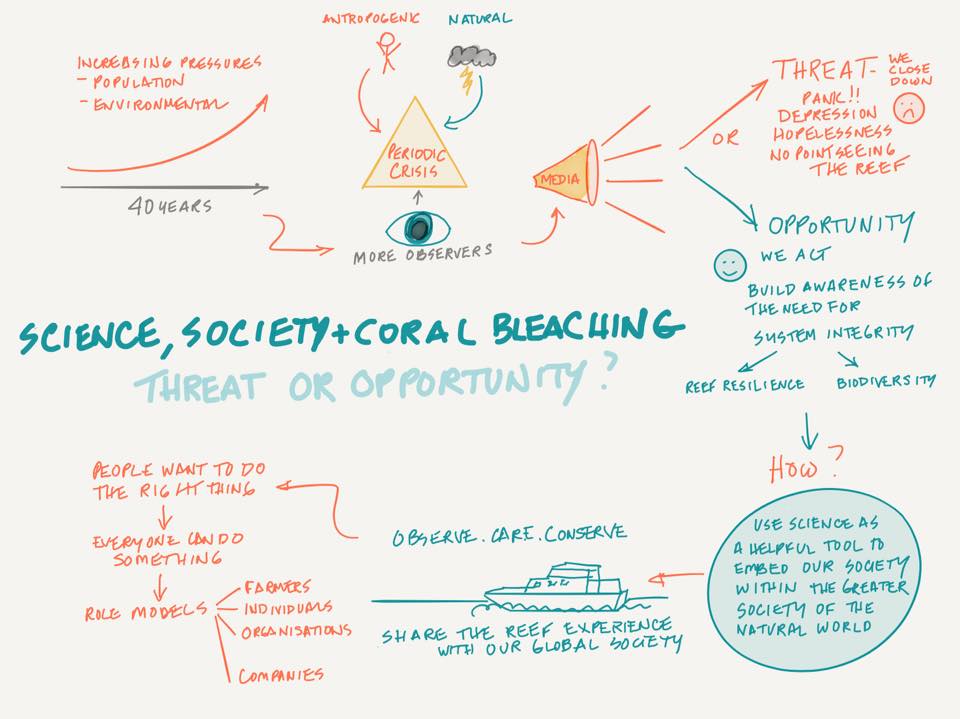 ANTROPOGENIC
NATURAL
INCREASING PRESSURES
- POPULATION
- ENVIRONMENTAL
40 YEARS
PERIODIC
CRISIS
MORE OBSERVERS
MEDIA
OR
THREAT-
WE
CLOSE
DOWN
PANIC!!
DEPRESSION
HOPELESSNESS
NO POINT SEEING
THE REEF
OPPORTUNITY
WE ACT
BUILD AWARENESS OF
THE NEED FOR
SYSTEM INTEGRITY
REEF RESILIENCE
BIODIVERSITY
SCIENCE, SOCIETY + CORAL BLEACHING
THREAT OR OPPORTUNITY?
HOW?
USE SCIENCE AS
A HELPFUL TOOL TO
EMBED OUR SOCIETY
WITHIN THE GREATER
SOCIETY OF THE
NATURAL WORLD
OBSERVE. CARE. CONSERVE
SHARE THE REEF EXPERIENCE
WITH OUR GLOBAL SOCIETY
PEOPLE WANT TO DO
THE RIGHT THING
EVERYONE CAN DO
SOMETHING
ROLE MODELS
FARMERS
INDIVIDUALS
ORGANISATIONS
COMPANIES